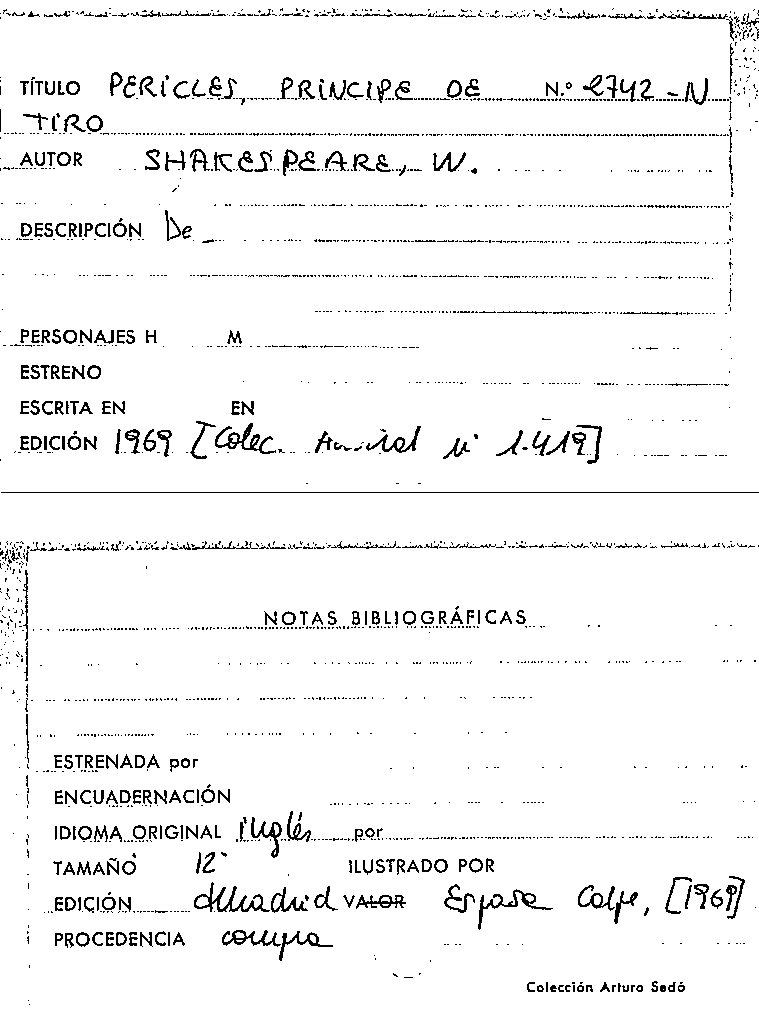 TÍTULO PERICLES, PRINCIPE DE N.º 2742-N
TIRO
AUTOR SHAKESPEARE, W.
DESCRIPCIÓN De
PERSONAJES H M
ESTRENO
ESCRITA EN EN
EDICIÓN 1969 [Colec. Austral nº 1.419]
NOTAS BIBLIOGRÁFICAS
ESTRENADA por
ENCUADERNACIÓN
IDIOMA ORIGINAL inglés por
TAMAÑO 12º ILUSTRADO POR
EDICIÓN Madrid VALOR Espasa Calpe, [1969]
PROCEDENCIA compra
Colección Arturo Sedó